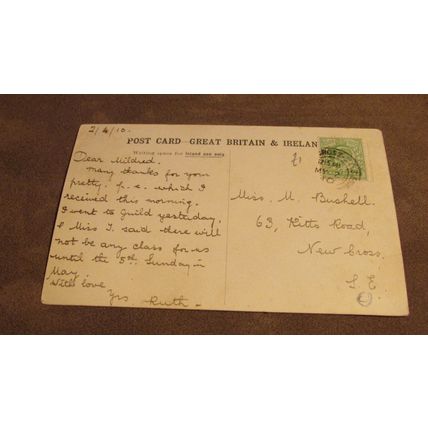 2/4/10.
POST CARD - GREAT BRITAIN & IRELAN
Writing space for inland use only
Dear Mildred.
Many thanks for your
pretty p. c. which I
received this morning.
I went to Guild yesterday,
& Miss T. said there will
not be any class for us
until the 5th Sunday in
May.
With love
Yrs Ruth -
£1
Miss. M. Bushell.
63, Kitts Road,
New Cross,
S. E.